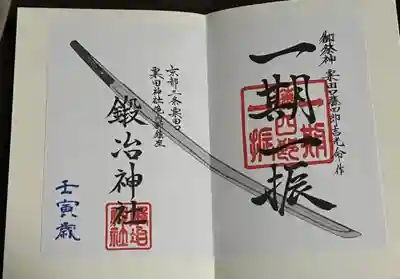 御祭神 粟田口藤四郎吉光命 作
一期一振
一期
藤四郎
一振
京都三条粟田口
粟田神社境内鎮座
鍛冶神社
壬寅歳